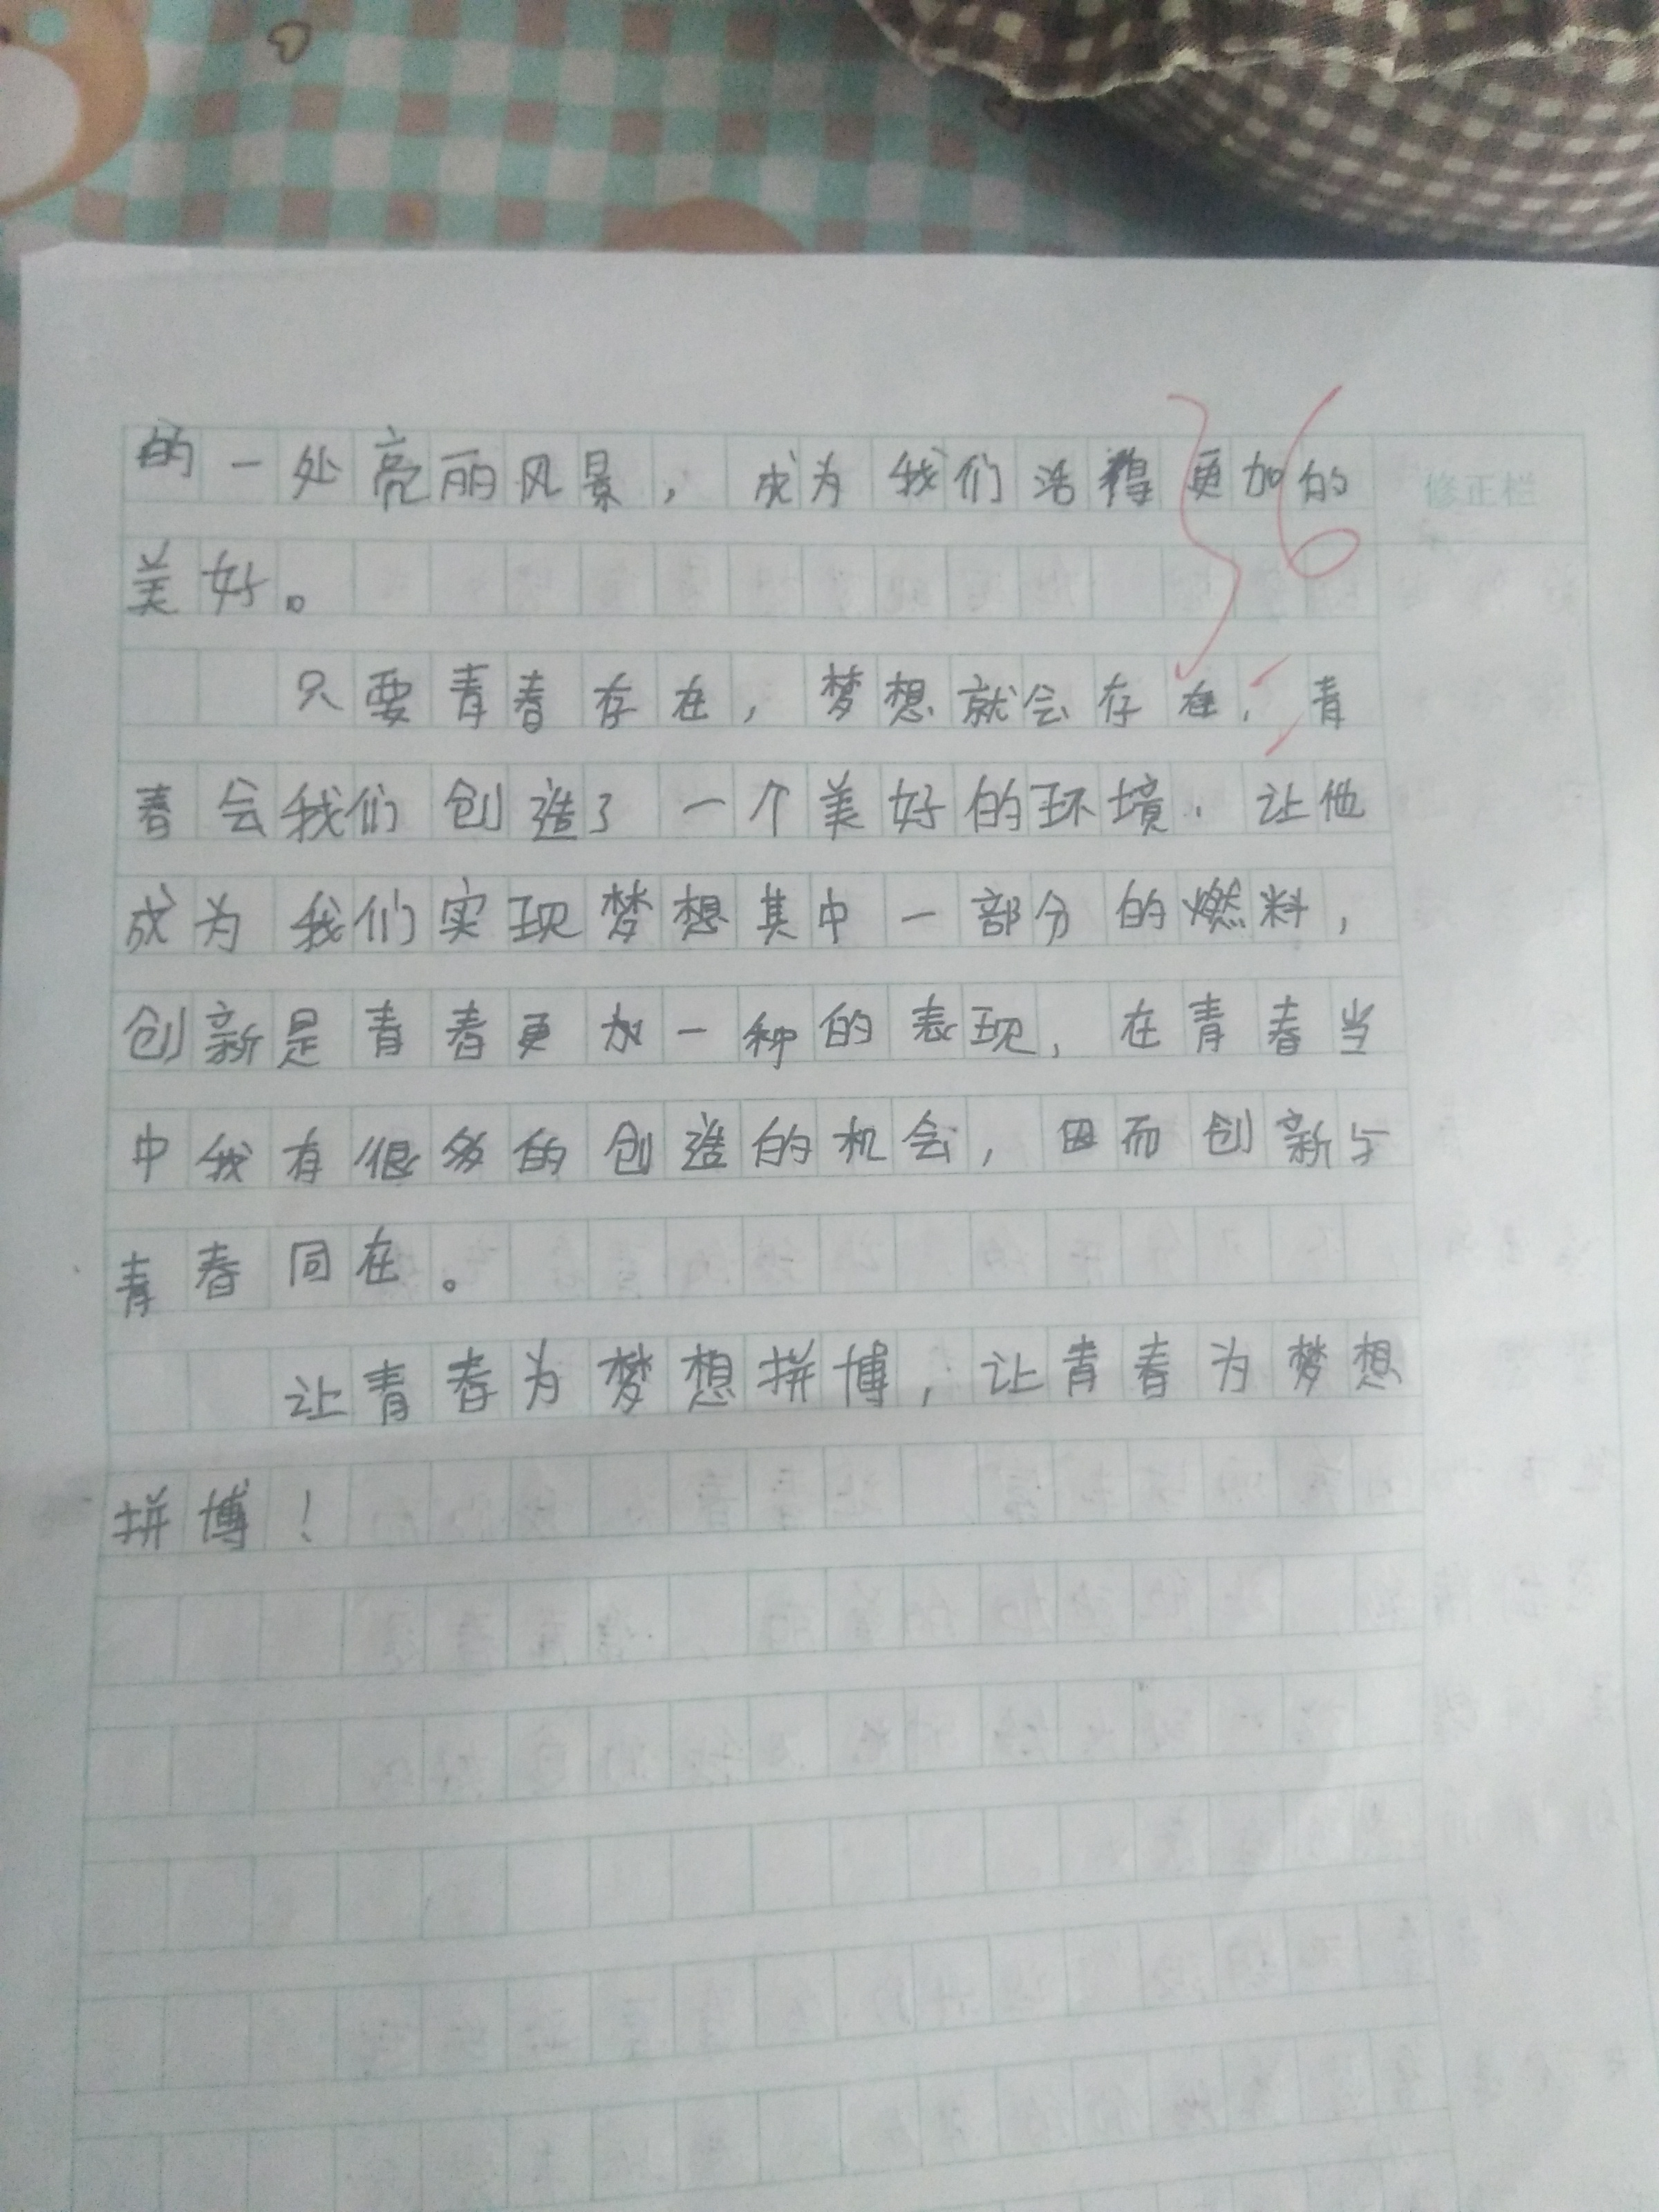 的一处亮丽风景，成为我们活得更加的
修正栏
36
美好。
只要青春存在，梦想就会存在，青
春会我们创造了一个美好的环境，让他
成为我们实现梦想其中一部分的燃料，
创新是青春更加一种的表现，在青春当
中我有很多的创造的机会，因而创新与
青春同在。
让青春为梦想拼博，让青春为梦想
拼博！